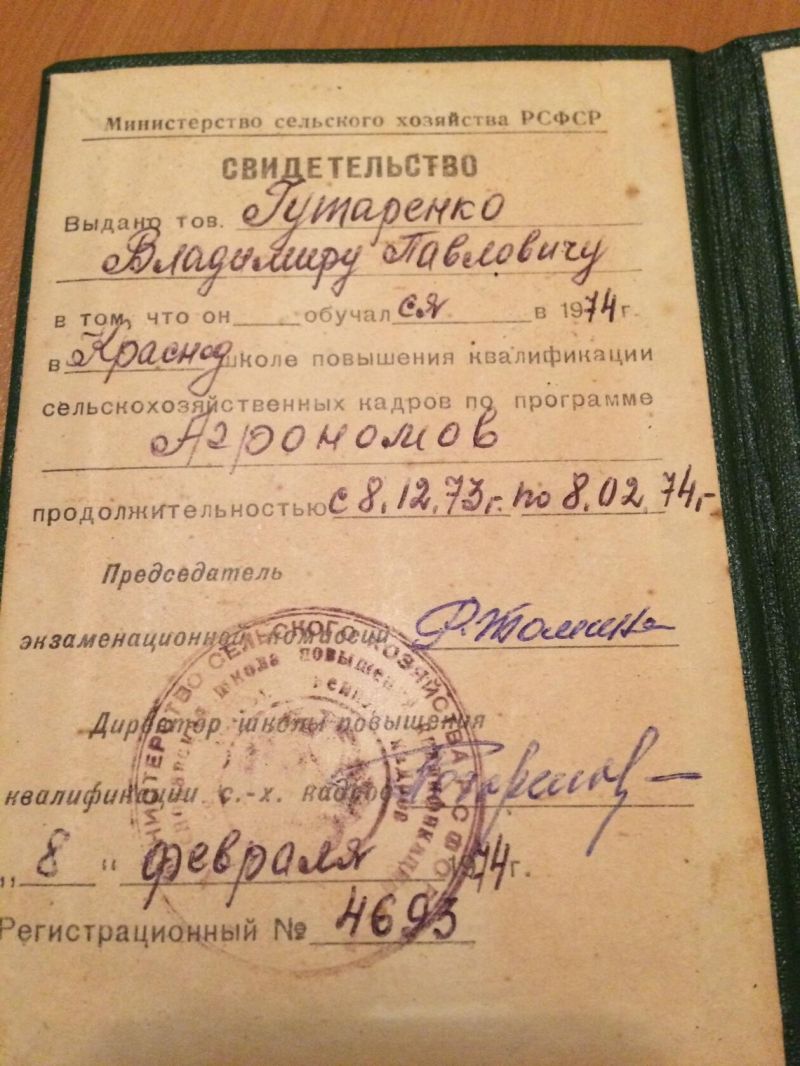 Министерство сельского хозяйства РСФСР
СВИДЕТЕЛЬСТВО
Выдано тов. Гутаренко
Владимиру Павловичу
в том, что он обучался в 1974 г.
в Краснод школе повышения квалификации
сельскохозяйственных кадров по программе
Агрономов
продолжительностью с 8.12.73 г. по 8.02.74 г.
Председатель
экзаменационной комиссии
Директор школы повышения
квалификации с.-х. кадров
„8" февраля 1974 г.
Регистрационный № 4693
МИНИСТЕРСТВО СЕЛЬСКОГО ХОЗЯЙСТВА РСФСР
школа повышения квалификации
кадров